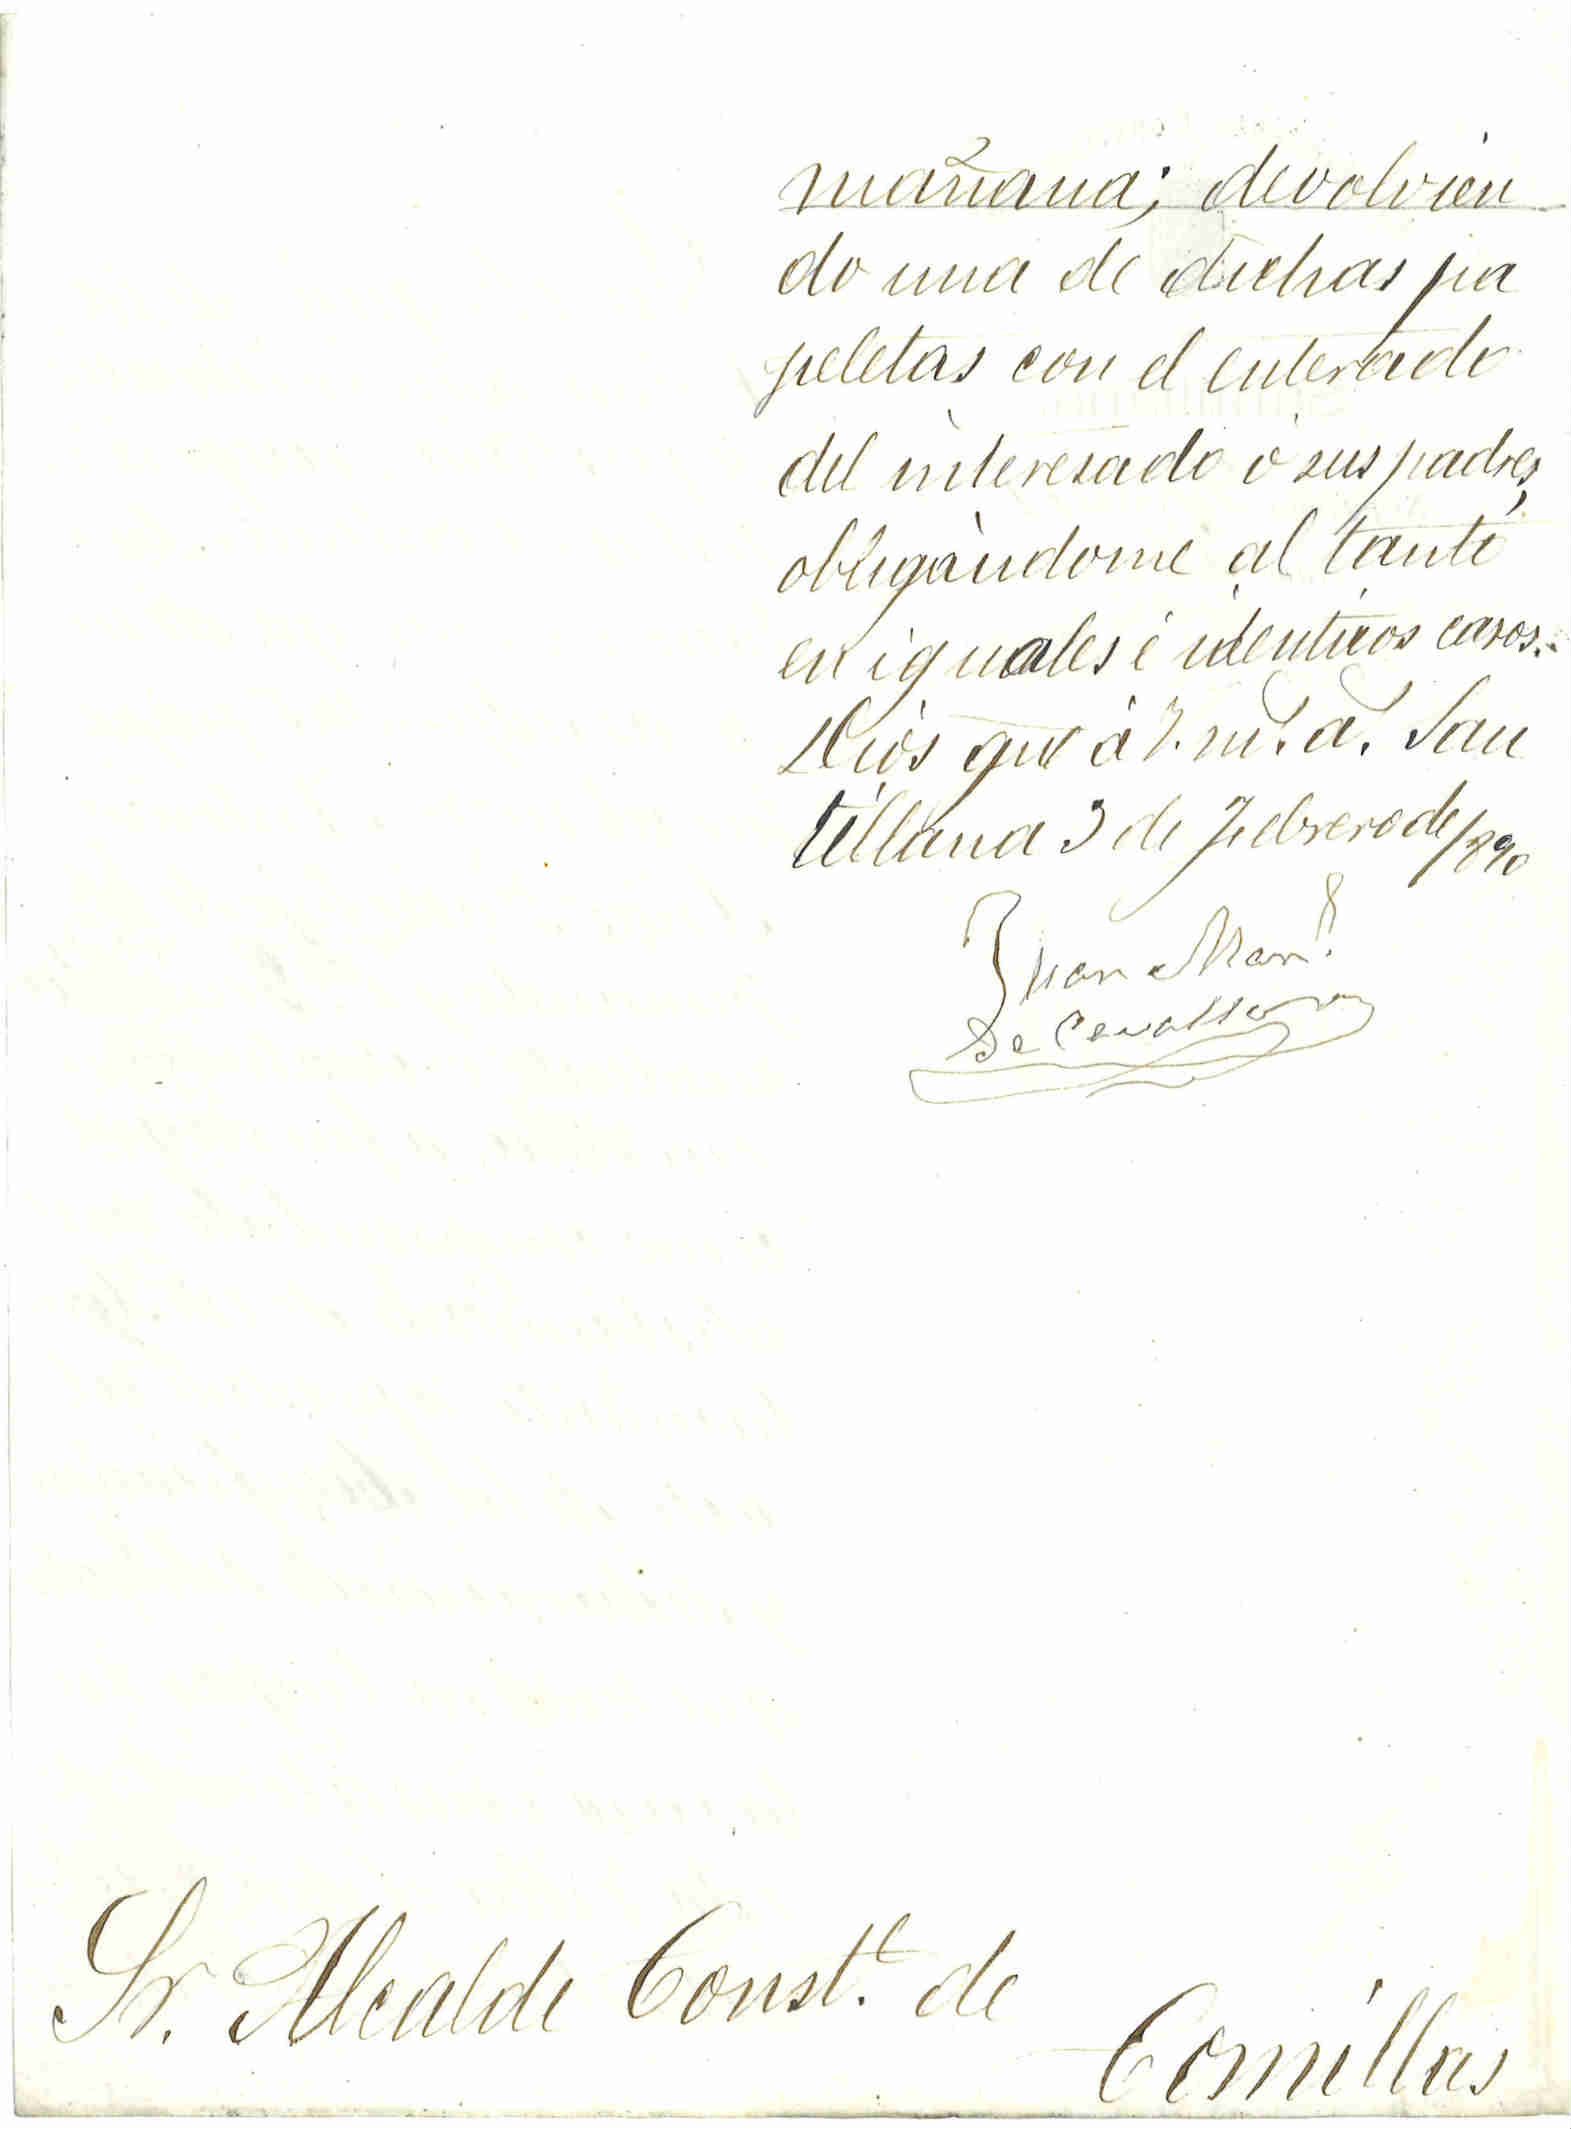 mañana; devolvien
do una de dichas pa
peletas con el enterado
del interesado ó sus padres,
obligándome al tanto
en iguales é identicos casos.
Dios gue á V. m.s a.s San
tillana 3 de Febrero de 1890
Juan Man.l
de Cevallos
Sr. Alcalde Const.l de
Comillas